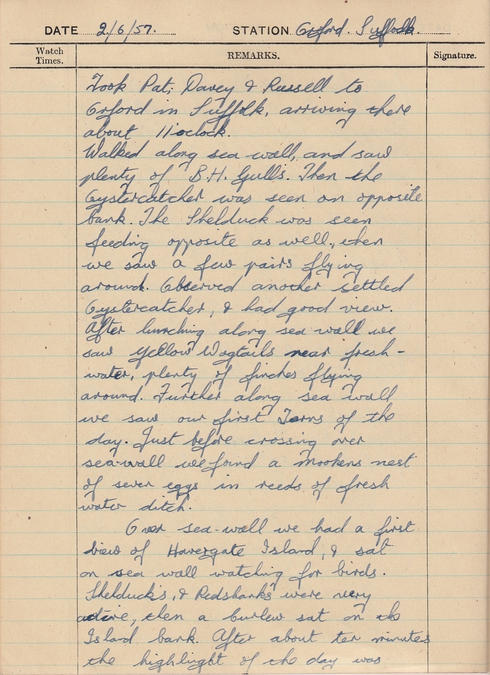 DATE 2/6/57. STATION Orford. Suffolk.
Watch Times. REMARKS. Signature.
Took Pat, Davey & Russell to
Orford in Suffolk, arriving there
about 11oclock.
Walked along sea wall, and saw
plenty of B.H. Gulls. Then the
Oystercatcher was seen on opposite
bank. The Shelduck was seen
feeding opposite as well, then
we saw a few pairs flying
around. Observed another settled
Oystercatcher, & had good view.
After lunching along sea wall we
saw Yellow Wagtails near fresh-
water, plenty of finches flying
around. Further along sea wall
we saw our first Terns of the
day. Just before crossing over
sea-wall we found a moorhens nest
of seven eggs in reeds of fresh
water ditch.
Over sea-wall we had a first
view of Havergate Island, & sat
on sea wall watching for birds.
Shelduck's, & Redshanks were very
active, then a curlew sat on the
Island bank. After about ten minutes
the highlight of the day was